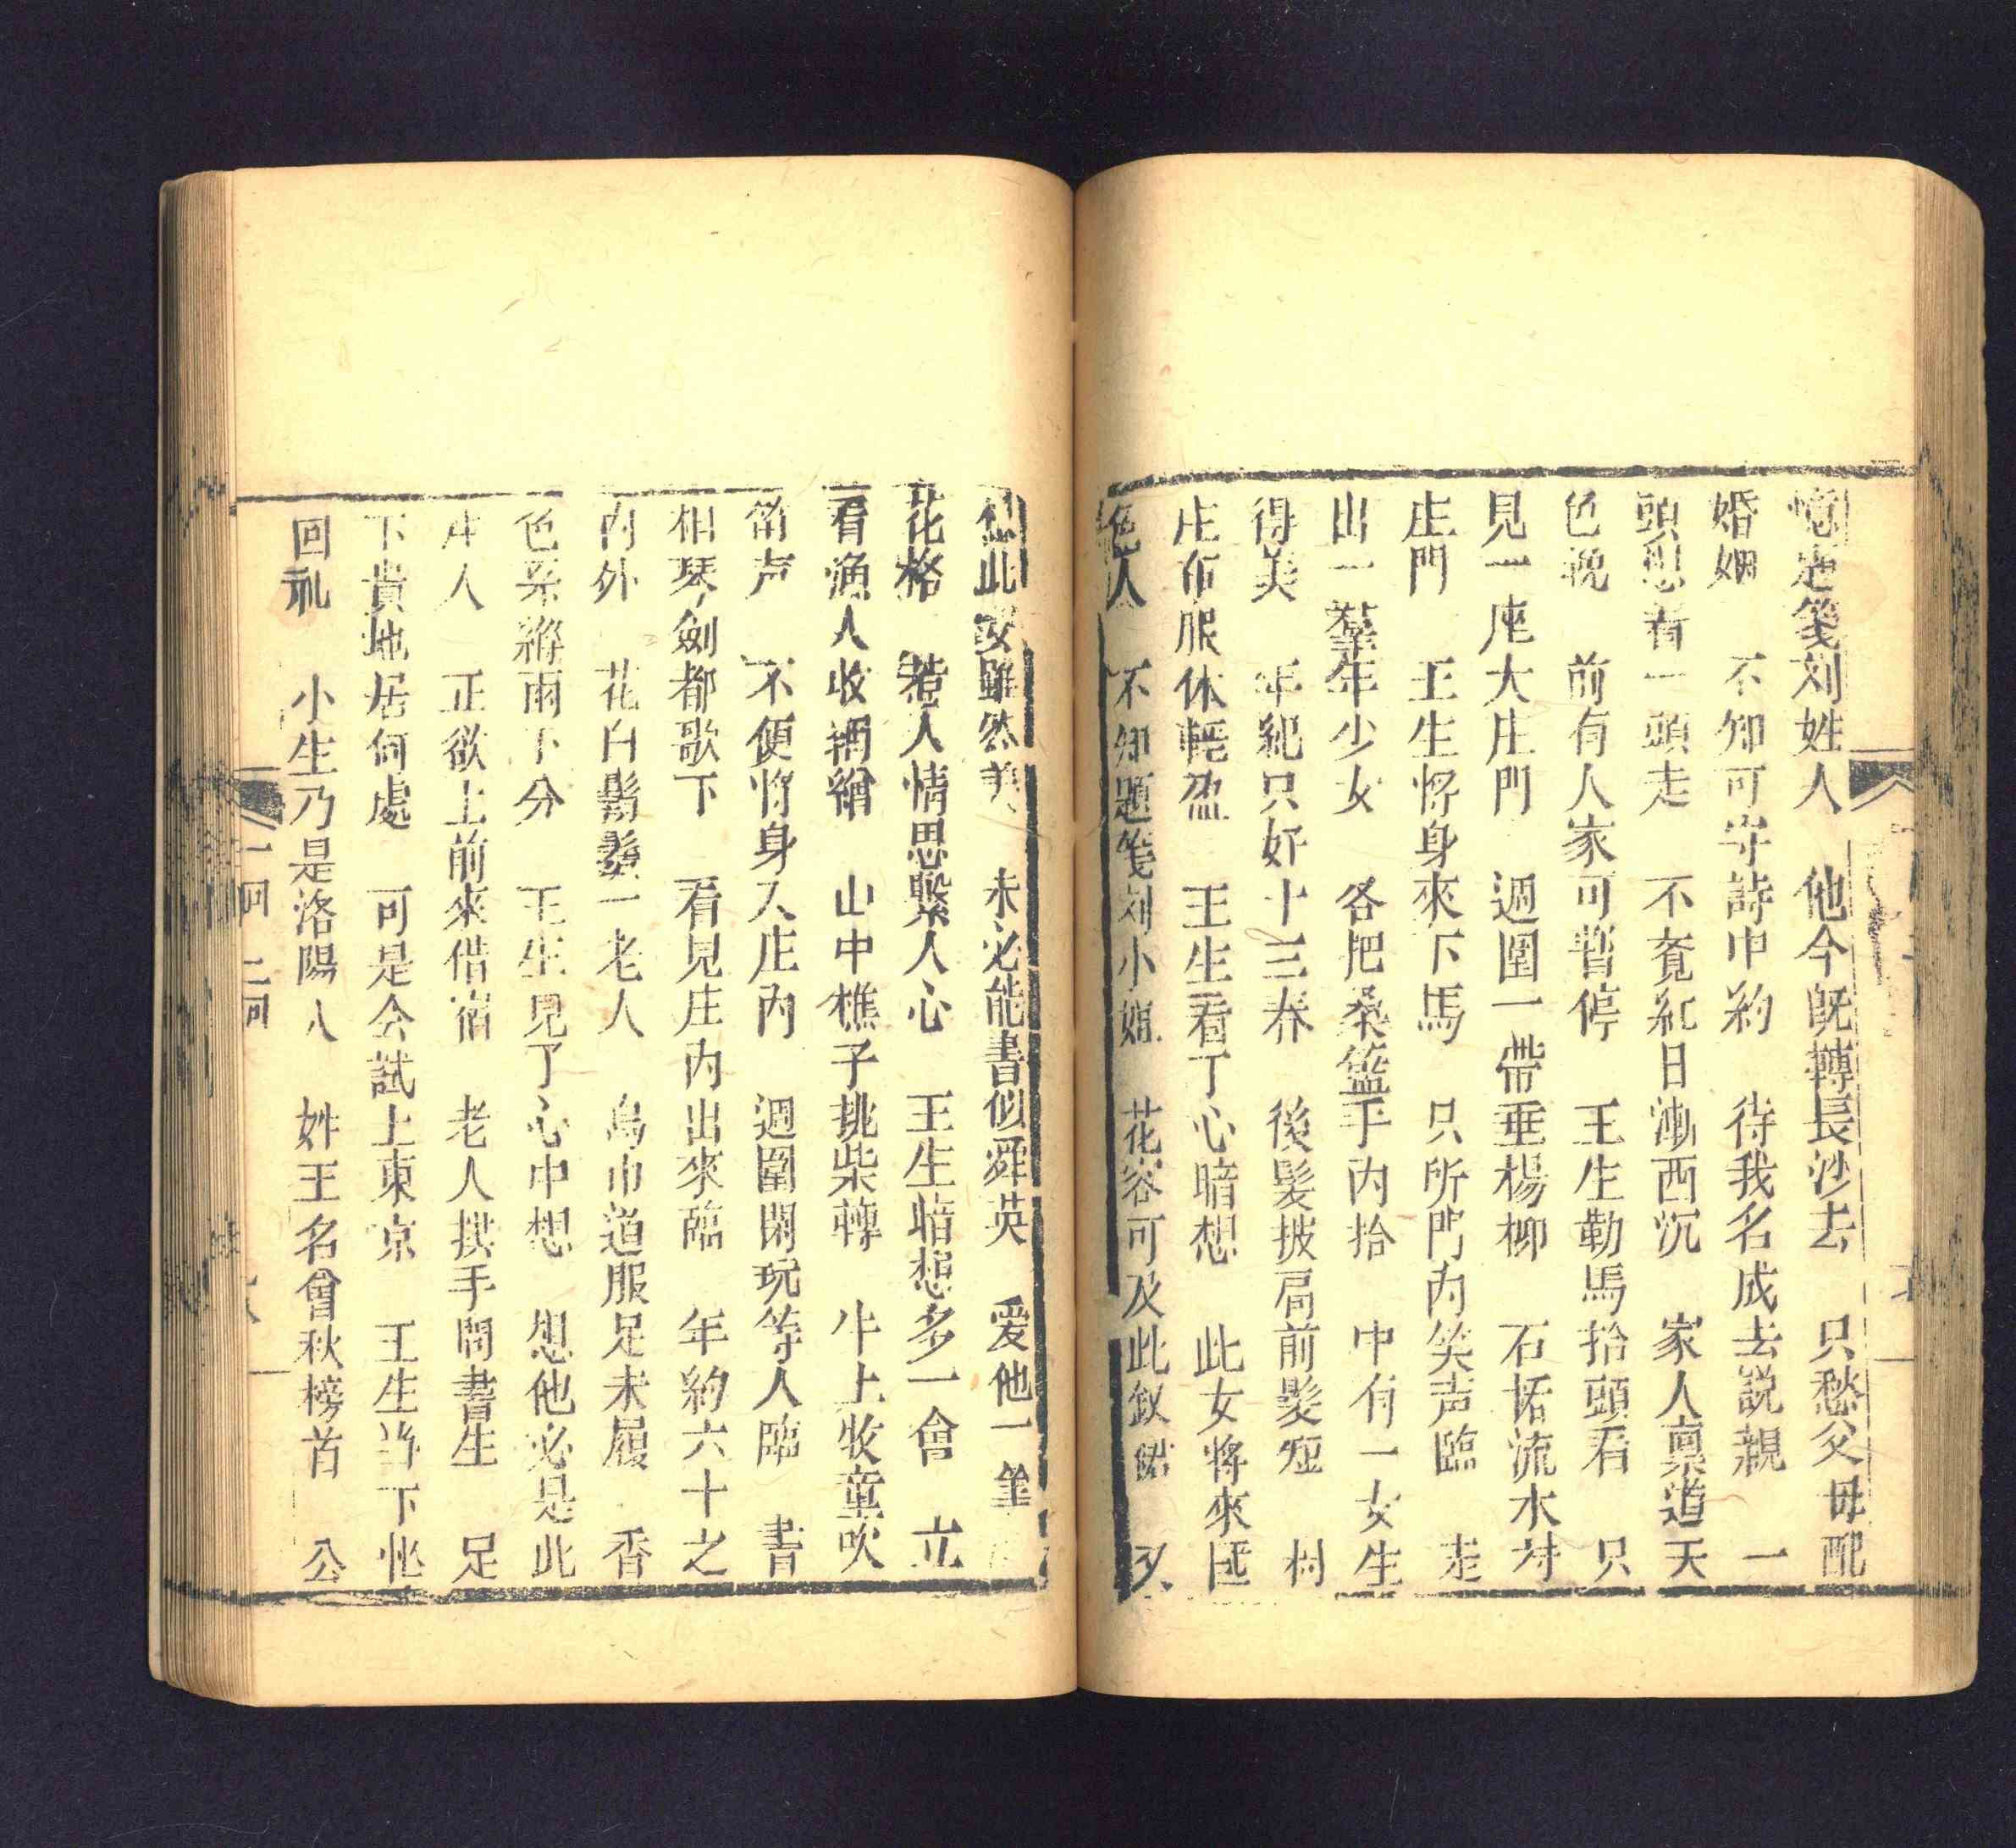 憶題箋刘姓人　他今既轉長沙去　只愁父母配
婚姻　不知可守詩中約　待我名成去説親　一
頭想着一頭走　不覓紅日漸西沉　家人禀道天
色晚　前有人家可暫停　王生勒馬抬頭看　只
見一座大庄門　週圍一帶垂楊柳　石 流水村
庄門　王生將身來下馬　只所門内笑声臨　走
出一羣年少女　各把桑籃手内拾　中有一女生
得美　年紀只好十三春　後髪披肩前髪短　村
庄布服体輕盈　王生看了心暗想　此女將來国
色人　不知題箋刘小姐　花容可及此釵裙　又
想此女雖然美　未必能書似舜英　爱他一筆
花格　惹人情思繫人心　王生暗想多一會　立
看漁人收網繒　山中樵子挑柴轉　牛上牧童吹
笛声　不便將身入庄内　週圍閑玩等人臨　書
相琴劍都歌下　看見庄内出來臨　年約六十之
内外　花白鬚鬢一老人　烏巾道服足未履　香
色糸縧兩下分　王生見了心中想　想他必是此
庄人　正欲上前來借宿　老人拱手問書生　足
下貴地居何處　可是会試上東京　王生当下忙
回礼　小生乃是洛陽人　姓王名曾秋榜首　公
一囘 二囘
八